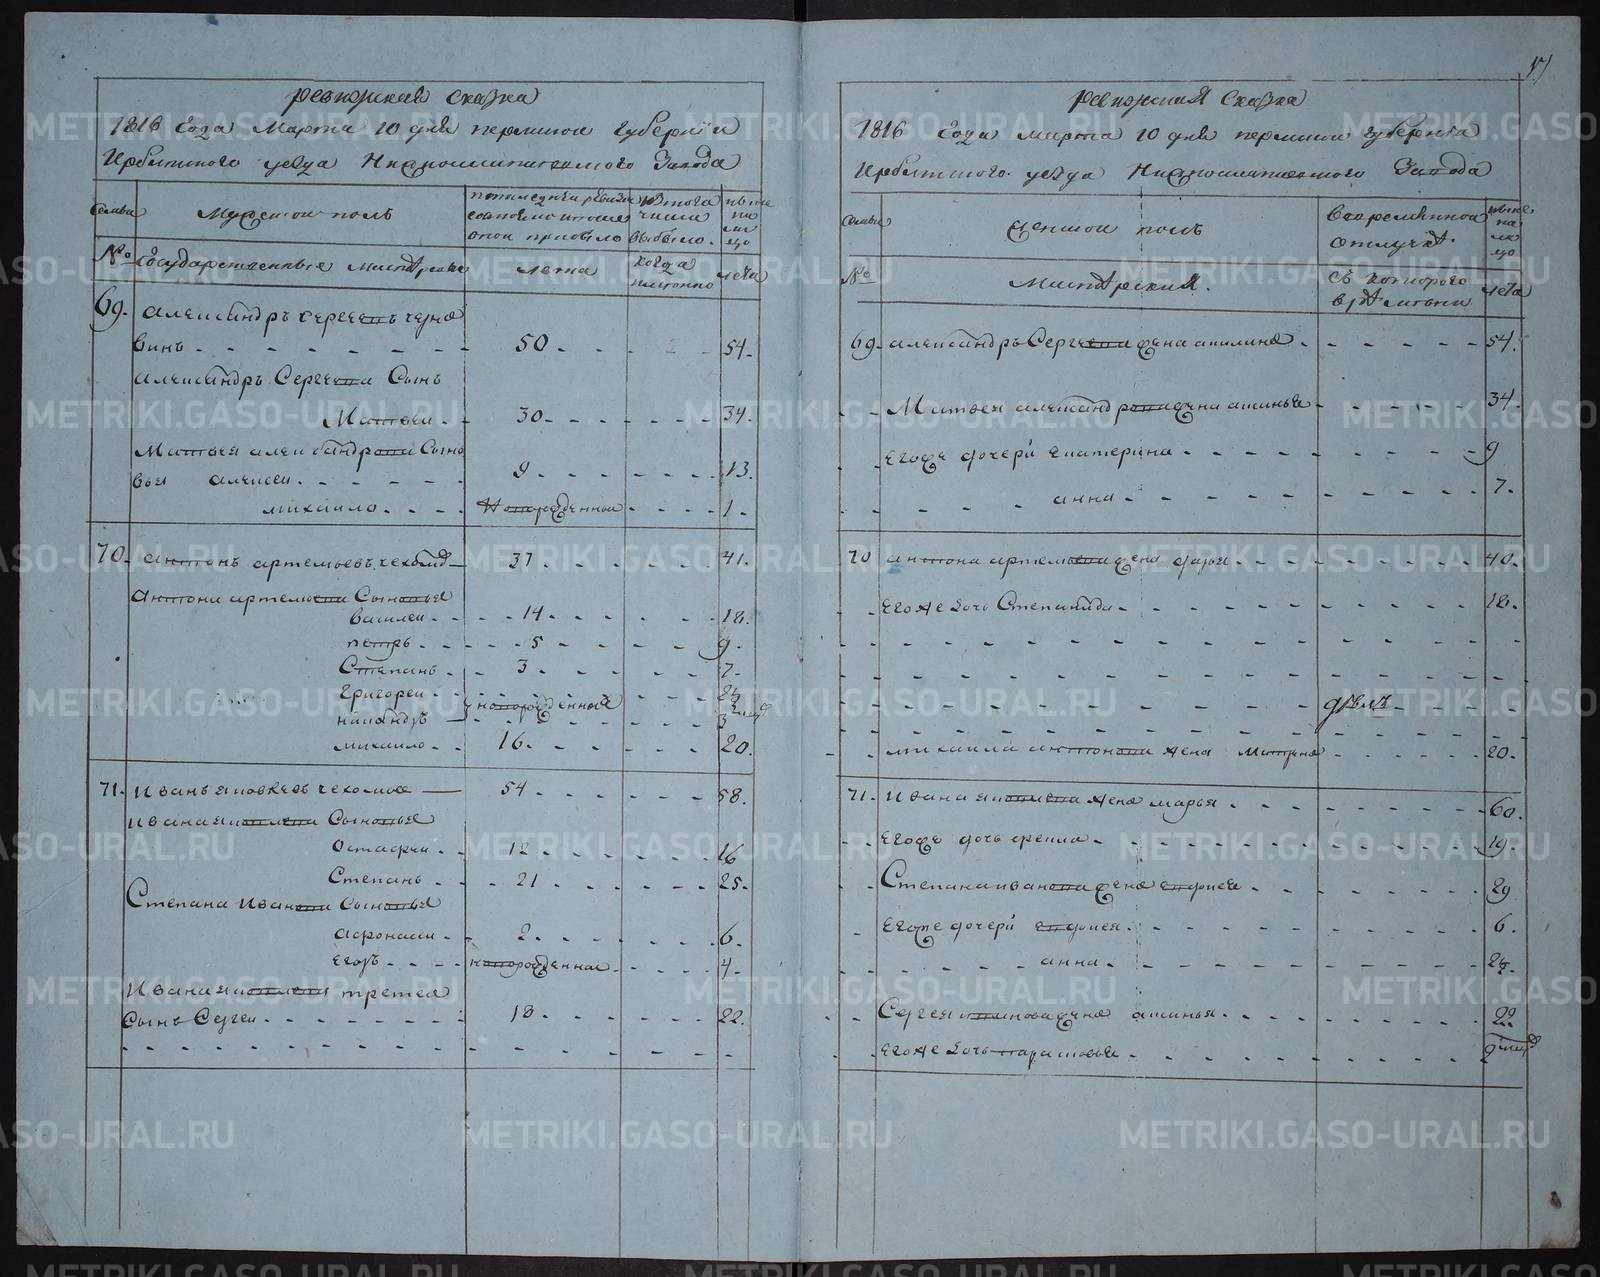 ревижская сказка
1816 года Марта 10 дня пермской губернїи
Ирбитского уезда Нижносинячихинского Завода
Семьи
Мужеской полъ
по последней ревизїи состояло и после оной прибыло
изъ того числа выбыло
ныне на лицо
№
Государственные мастеровые
лета
когда именно
лета
69. Александръ Сергеевъ черно
винъ 50 54.
Александръ Сергеева Сынъ
Матвеи 30 34.
Матвея александрова Сыно
вья алексеи 9 13.
михаило Новорожденной 1.
70. антонъ артемьевъ 37 41.
антона артемьева Сыновья
василеи 14 18.
петръ 5 9.
Степанъ 3 7.
григореи
новорожденные
михаило 16. 20.
71. Иванъ яковлевъ 54 58.
Ивана яковлева Сыновья
Остафеи 12 16
Степанъ 21 25.
Степана Иванова Сыновья
афонасеи 2. 6.
Егоръ новорожденное 4.
Ивана яковлева третеи
Сынъ Сергеи 18 22.
17
ревижская Сказка
1816 года марта 10 дня пермской губернїи
Ирбитского уезда Нижносинячихинского Завода
Семьи
Женской полъ
во временной отлучке
ныне на лицо
№
Мастерския.
съ которого времени
лета
69. александръ Сергеева жена акилина 54.
Матвея александрова жена аксинья 34.
Егоже дочери Екатерина 9
анна 7.
70 антона артемьева жена дарья 40.
Егоже дочь Степанида 18.
михаила антонова жена Матрена 20.
71. Ивана яковлева жена марья 60.
Егоже дочь фекла 19.
Степана иванова жена евдокея 29
Егоже дочери евдокея 6.
анна
Сергея иванова жена аксинья 22.
Егоже дочь парасковья
METRIKI.GASO-URAL.RU